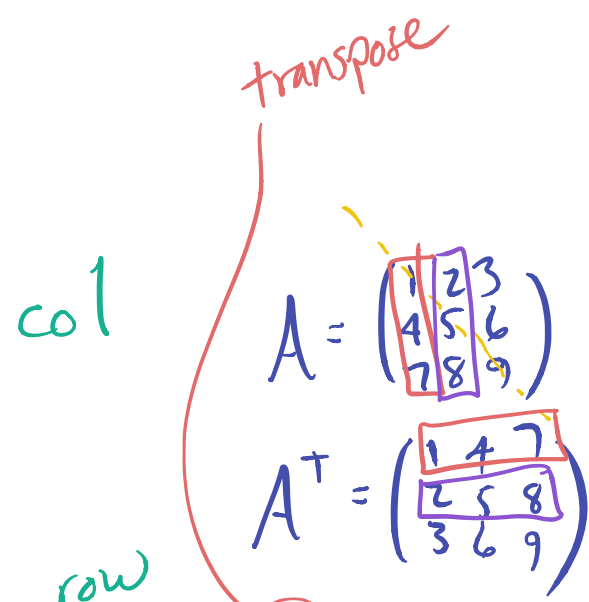 transpose
col
A = ( 1 2 3
4 5 6
7 8 9 )
Aᵀ = ( 1 4 7
2 5 8
3 6 9 )
row